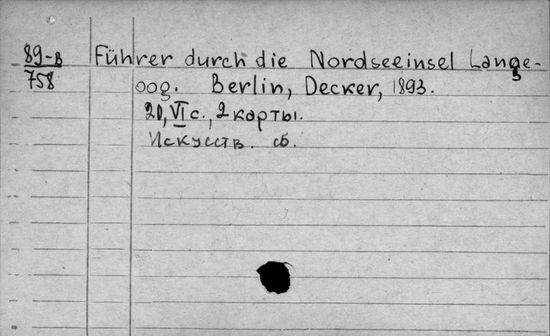 89-в Führer durch die Nordseeinsel Lange-
758 oog. Berlin, Decker, 1893.
20, VI с., 2 карты.
Искусств. сб.